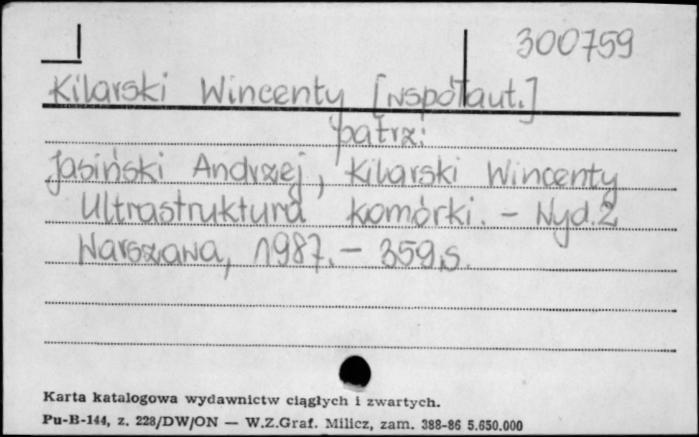 300759
Kilarski Wincenty [współaut.]
patrz:
Jasiński Andrzej, Kilarski Wincenty
Ultrastruktura komórki. - Wyd. 2
Warszawa, 1987. - 359,s.
Karta katalogowa wydawnictw ciągłych i zwartych.
Pu-B-144, z. 228/DW/ON — W.Z.Graf. Milicz, zam. 388-86 5.650.000